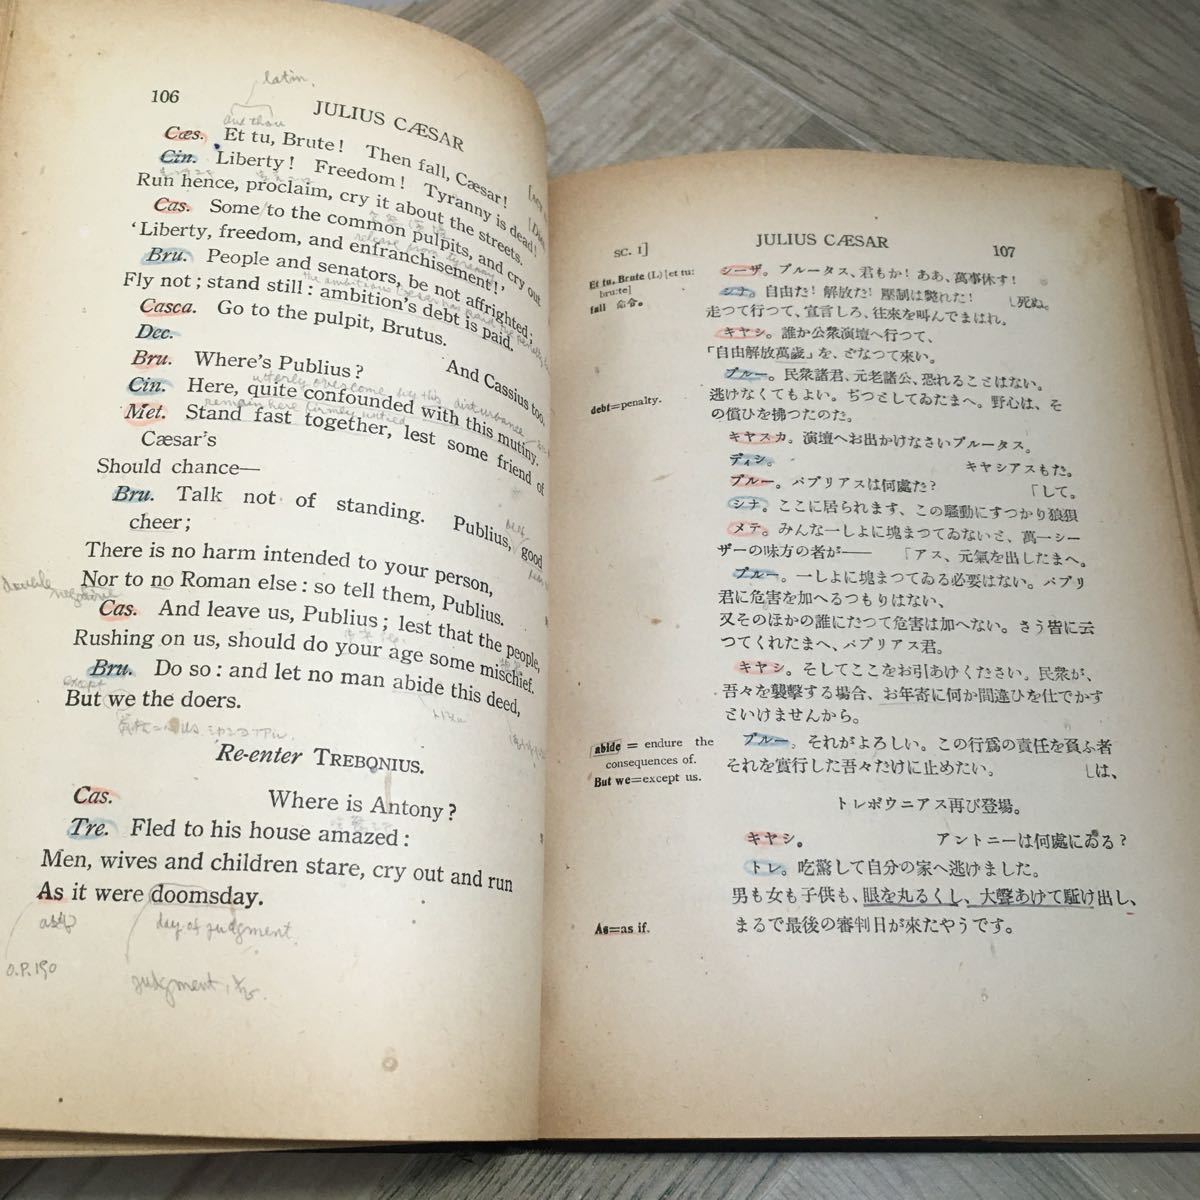 latin.
106
JULIUS CÆSAR
and thou
Cæs. Et tu, Brute! Then fall, Cæsar!
Cin. Liberty! Freedom! Tyranny is dead!
Run hence, proclaim, cry it about the streets.
Cas. Some to the common pulpits, and cry out
release from tyranny
'Liberty, freedom, and enfranchisement!'
Bru. People and senators, be not affrighted;
Fly not; stand still: ambition's debt is paid.
Casca. Go to the pulpit, Brutus.
Dec. And Cassius too.
Bru. Where's Publius?
utterly overcome by this disturbance
Cin. Here, quite confounded with this mutiny.
remain here firmly united
Met. Stand fast together, lest some friend of
Cæsar's
Should chance—
Bru. Talk not of standing. Publius, good
cheer;
There is no harm intended to your person,
double negative
Nor to no Roman else: so tell them, Publius.
Cas. And leave us, Publius; lest that the people,
Rushing on us, should do your age some mischief.
Bru. Do so: and let no man abide this deed,
except
But we the doers.
Re-enter TREBONIUS.
Cas. Where is Antony?
Tre. Fled to his house amazed:
Men, wives and children stare, cry out and run
As it were doomsday.
as if
day of judgment.
O.P. 190
judgment,
SC. I]
JULIUS CÆSAR
107
Et tu, Brute (L) [et tu:
bru:te]
fall 命令。
シーザ。ブルータス、君もか! ああ、萬事休す!
シナ。自由だ! 解放だ! 壓制は斃れた! 〔死ぬ。
走つて行つて、宣言しろ、往來を叫んでまはれ。
キヤシ。誰か公衆演壇へ行つて、
「自由解放萬歲」を、どなつて來い。
ブルー。民衆諸君、元老諸公、恐れることはない。
逃げなくてもよい。ぢつとしてゐたまへ。野心は、そ
debt=penalty.
の償ひを拂つたのだ。
キヤスカ。演壇へお出かけなさいブルータス。
ディシ。 キヤシアスもた。
ブルー。パブリアスは何處だ? 「して。
シナ。ここに居られます、この騷動にすつかり狼狽
メテ。みんな一しよに塊まつてゐないと、萬一シー
ザーの味方の者が—— 「アス、元氣を出したまへ。
ブルー。一しよに塊まつてゐる必要はない。パブリ
君に危害を加へるつもりはない、
又そのほかの誰にだつて危害は加へない。さう皆に云
つてくれたまへ、パブリアス君。
キヤシ。そしてここをお引あけください、民衆が、
吾々を襲擊する場合、お年寄に何か間違ひを仕でかす
といけませんから。
abide = endure the
consequences of.
But we=except us.
ブルー。それがよろしい。この行爲の責任を負ふ者
それを實行した吾々だけに止めたい。 〔は、
トレボウニアス再び登場。
キヤシ。 アントニーは何處にゐる?
トレ。吃驚して自分の家へ逃げました。
男も女も子供も、眼を丸るくし、大聲あけて駈け出し、
As=as if.
まるで最後の審判日が來たやうです。